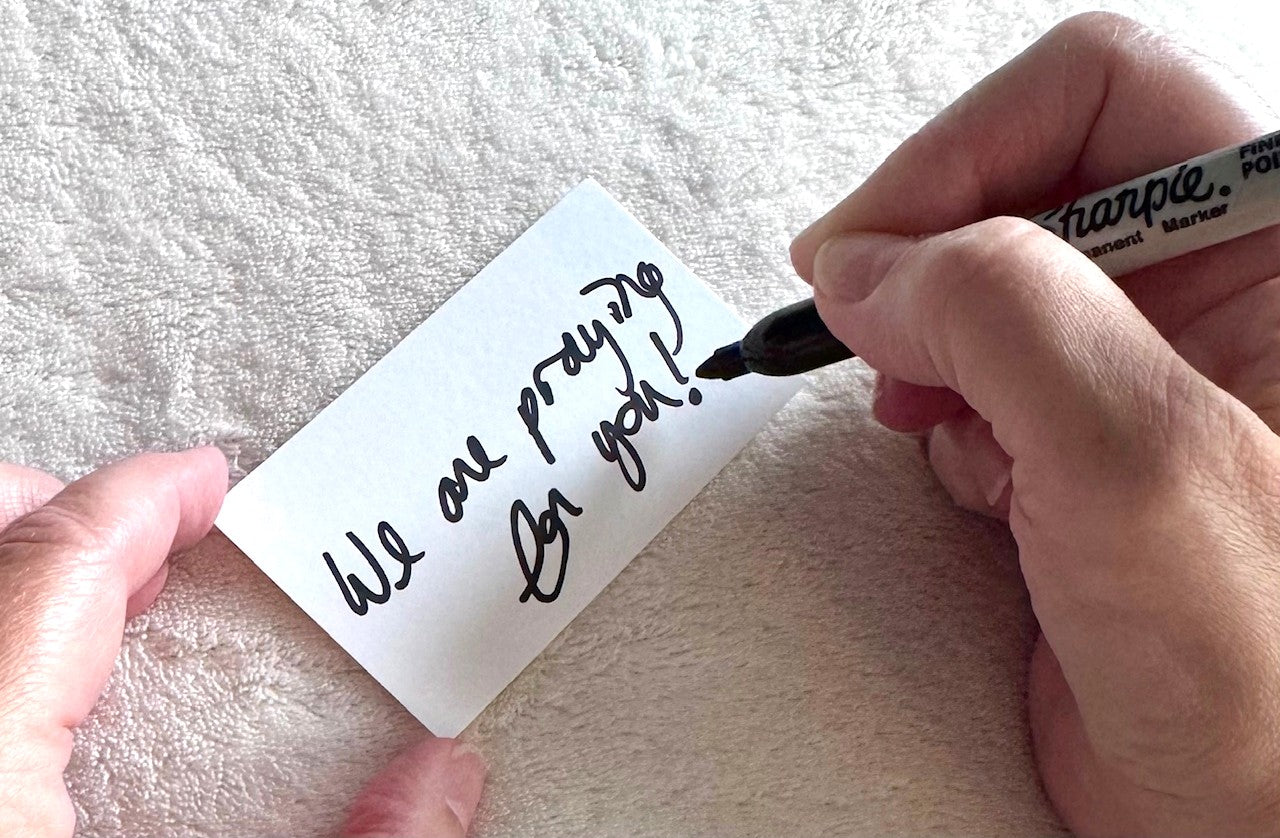 We are praying
for you!
Sharpie.
FINE
POINT
Permanent Marker